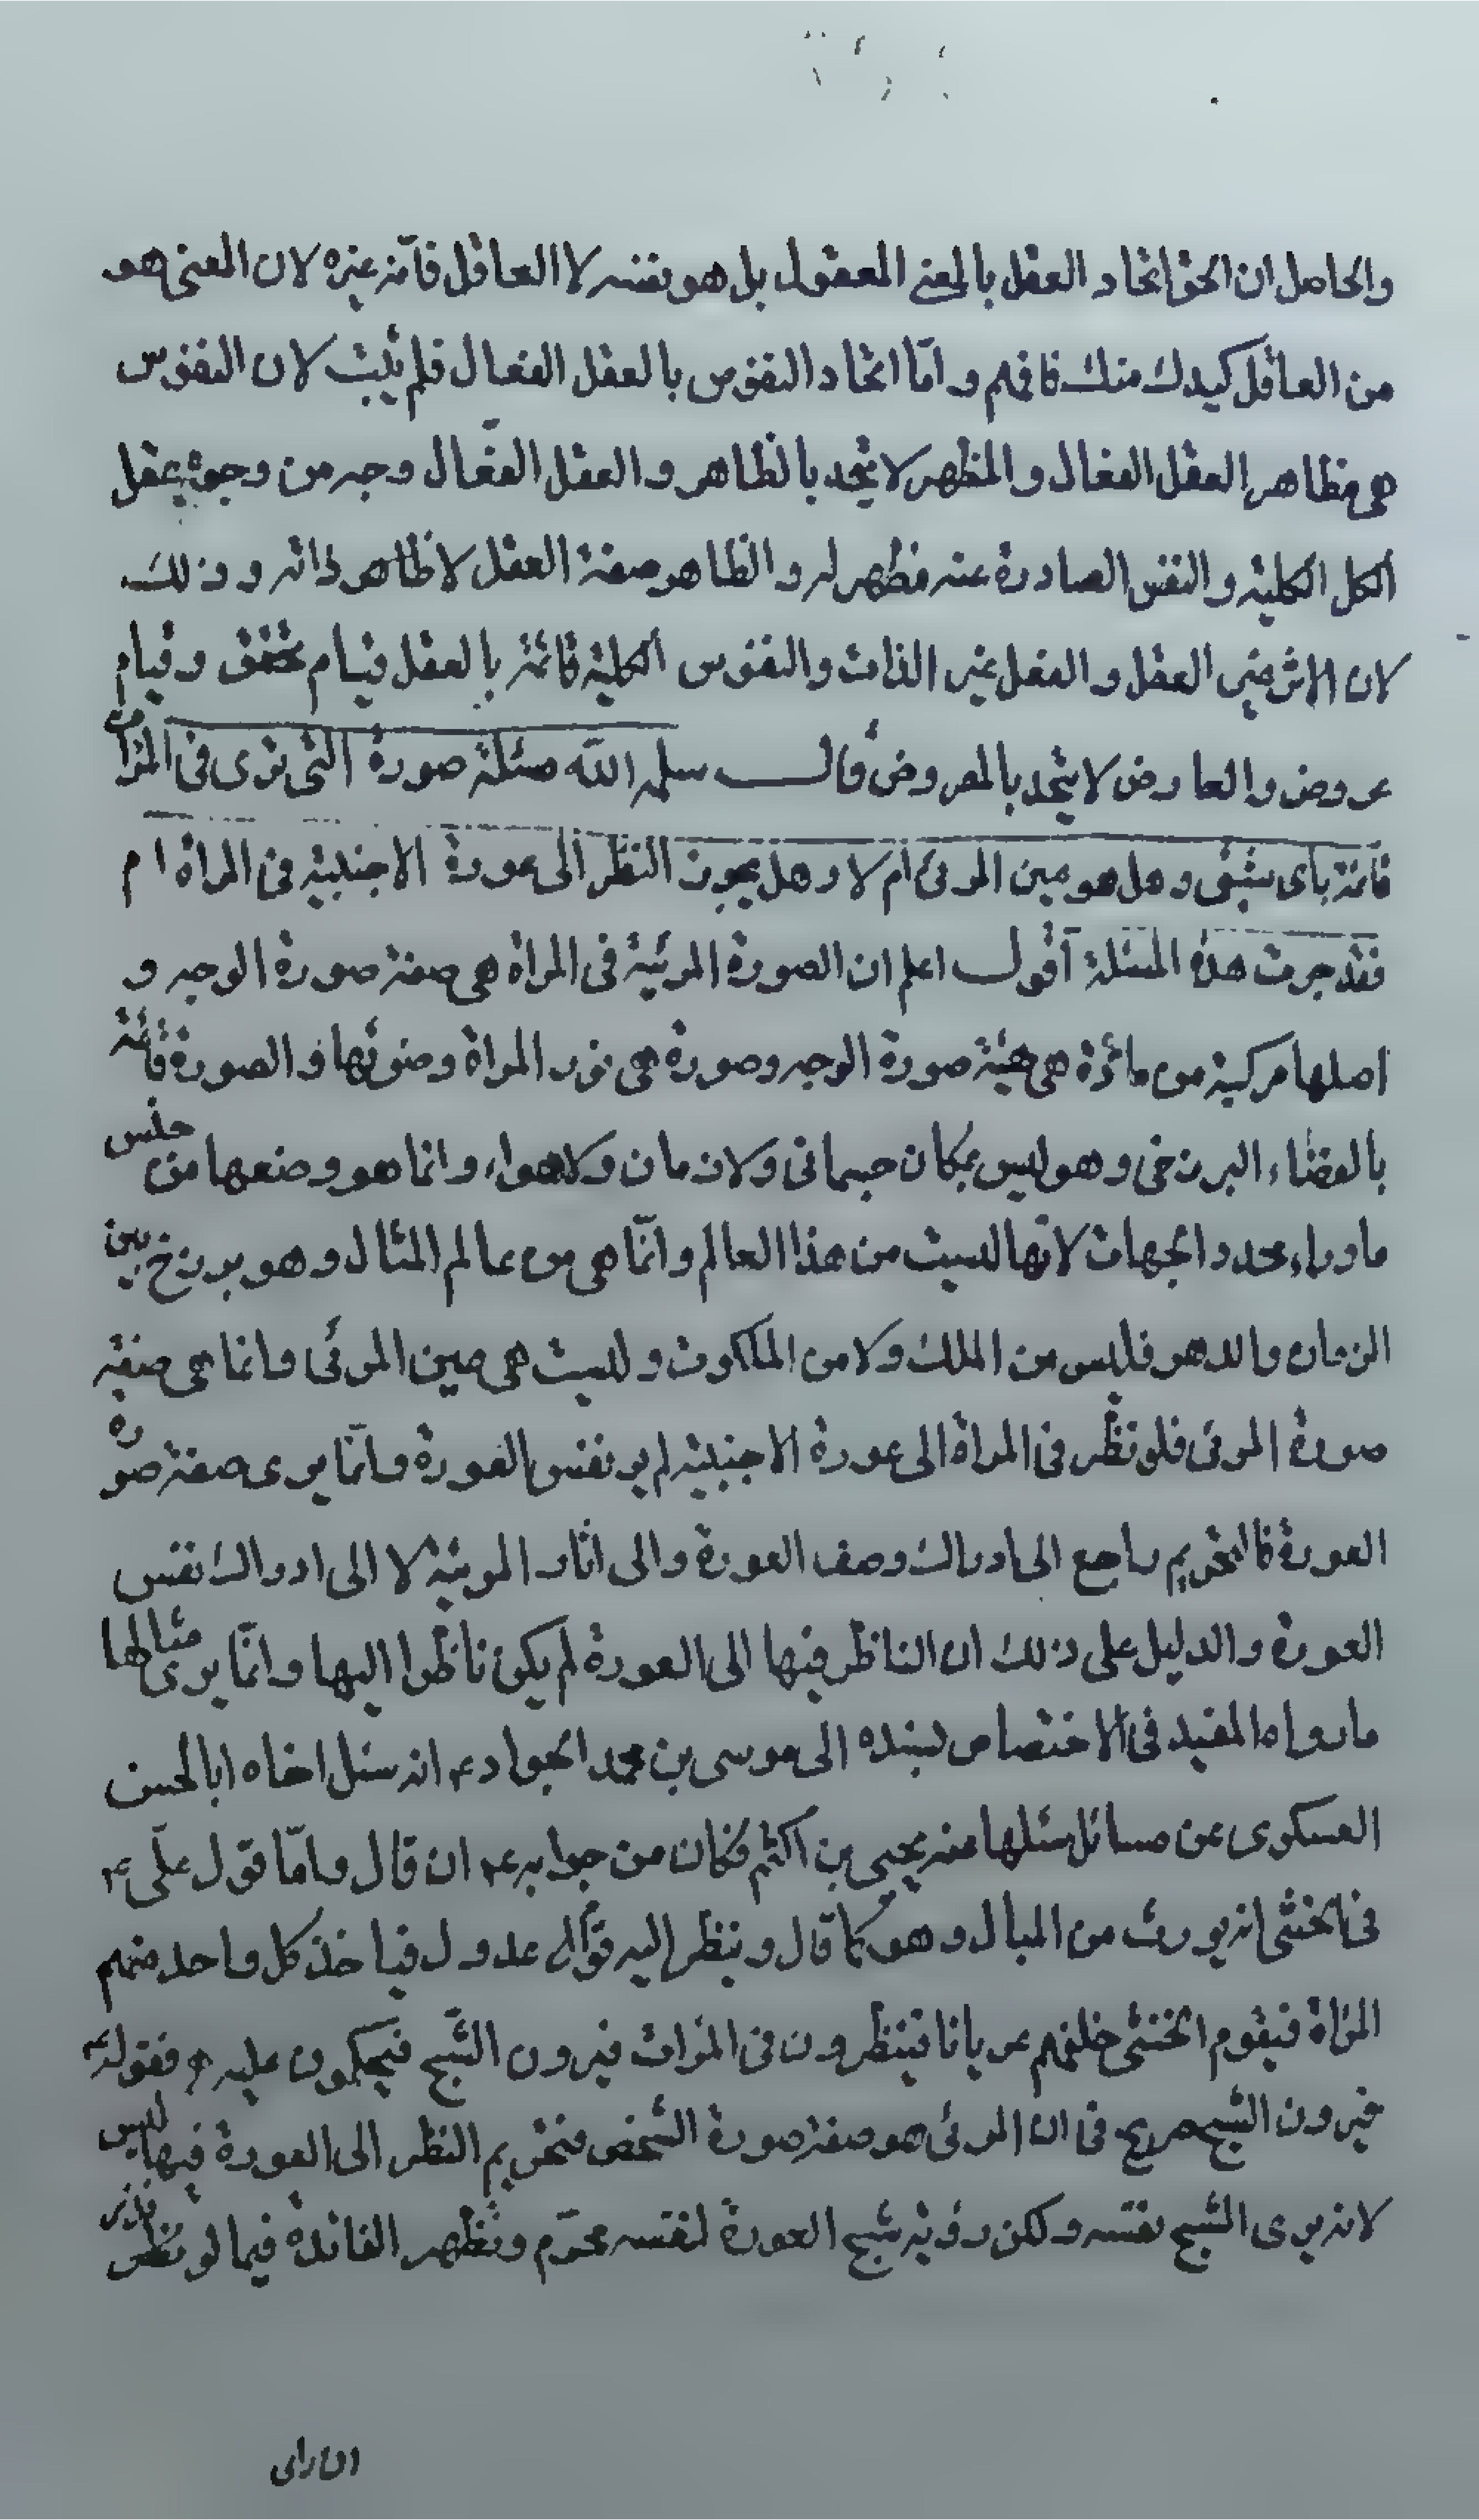 والحاصل ان الحق اتحاد العقل بالمعنى المعقول بل هو بنفسه لا العاقل فانه غيره لان المعنى هو
من العاقل كيدك منك فافهم واما اتحاد النفوس بالعقل الفعال فلم يثبت لان النفوس
هى مظاهر العقل الفعال والمظهر لا يتحد بالظاهر والعقل الفعّال وجه من وجوه عقل
الكل الكلية والنفس الصادرة عنه مظهر له والظاهر صفة العقل لا ظاهر ذاته وذلك
لان الاثر غير العقل والفعل غير الذات والنفوس الكلية قائمة بالعقل قيام تحقق وقيام
عروض والعارض لا يتحد بالمعروض قال سلمه الله مسئلة صورة التى ترى فى المرات
قائمة باى شئى وهل هو عين المرئى ام لا وهل يجوز النظر الى عورة الاجنبية فى المراة ام
فقد جرت هذه المسئلة اقول اعلم ان الصورة المرئية فى المراة هى صفة صورة الوجه و
اصلها مركبة من مادّة هى هيئة صورة الوجه وصورة هى نور المراة وضوئها و الصورة قائمة
بالفضاء البرزخى وهو ليس بمكان جسمانى ولا زمان ولا هواء وانما هو وضعها من جنس
ماوراء محدد الجهات لانّها ليست من هذا العالم وانّما هى من عالم المثال وهو برزخ بين
الزمان والدهر فليس من الملك ولا من الملكوت وليست هى عين المرئى وانما هى صفة
صورة المرئى فلو نظر فى المراة الى عورة الاجنبية لم ير نفس العورة وانّما يرى صفة صورة
العورة فالتحريم راجع الى ادراك وصف العورة والى اثار المرئية لا الى ادراك نفس
العورة والدليل على ذلك ان الناظر فيها الى العورة لم يكن ناظرا اليها وانّما يرى مثالها
مارواه المفيد فى الاختصاص بسنده الى موسى بن محمد الجواد ع انه سئل اخاه ابا الحسن
العسكرى عن مسائل سئلها منه يحيى بن اكثم فكان من جوابه ع ان قال وامّا قول علىّ ع
فى الخنثى انه يورث من المبال وهو كما قال وينظر اليه قوم عدول فياخذ كل واحد منهم
المراة فيقوم الخنثى خلفهم عريانا فينظرون فى المرات فيرون الشّبح فيحكمون عليه فقوله ع
فيرون الشبح صريح فى ان المرئى هو صفة صورة الشخص فتحريم النظر الى العورة فيها ليس
لانه يرى الشبح نفسه ولكن رؤية شبح العورة لنفسه محرّم وتظهر الفائدة فيما لو نظر
ان راى